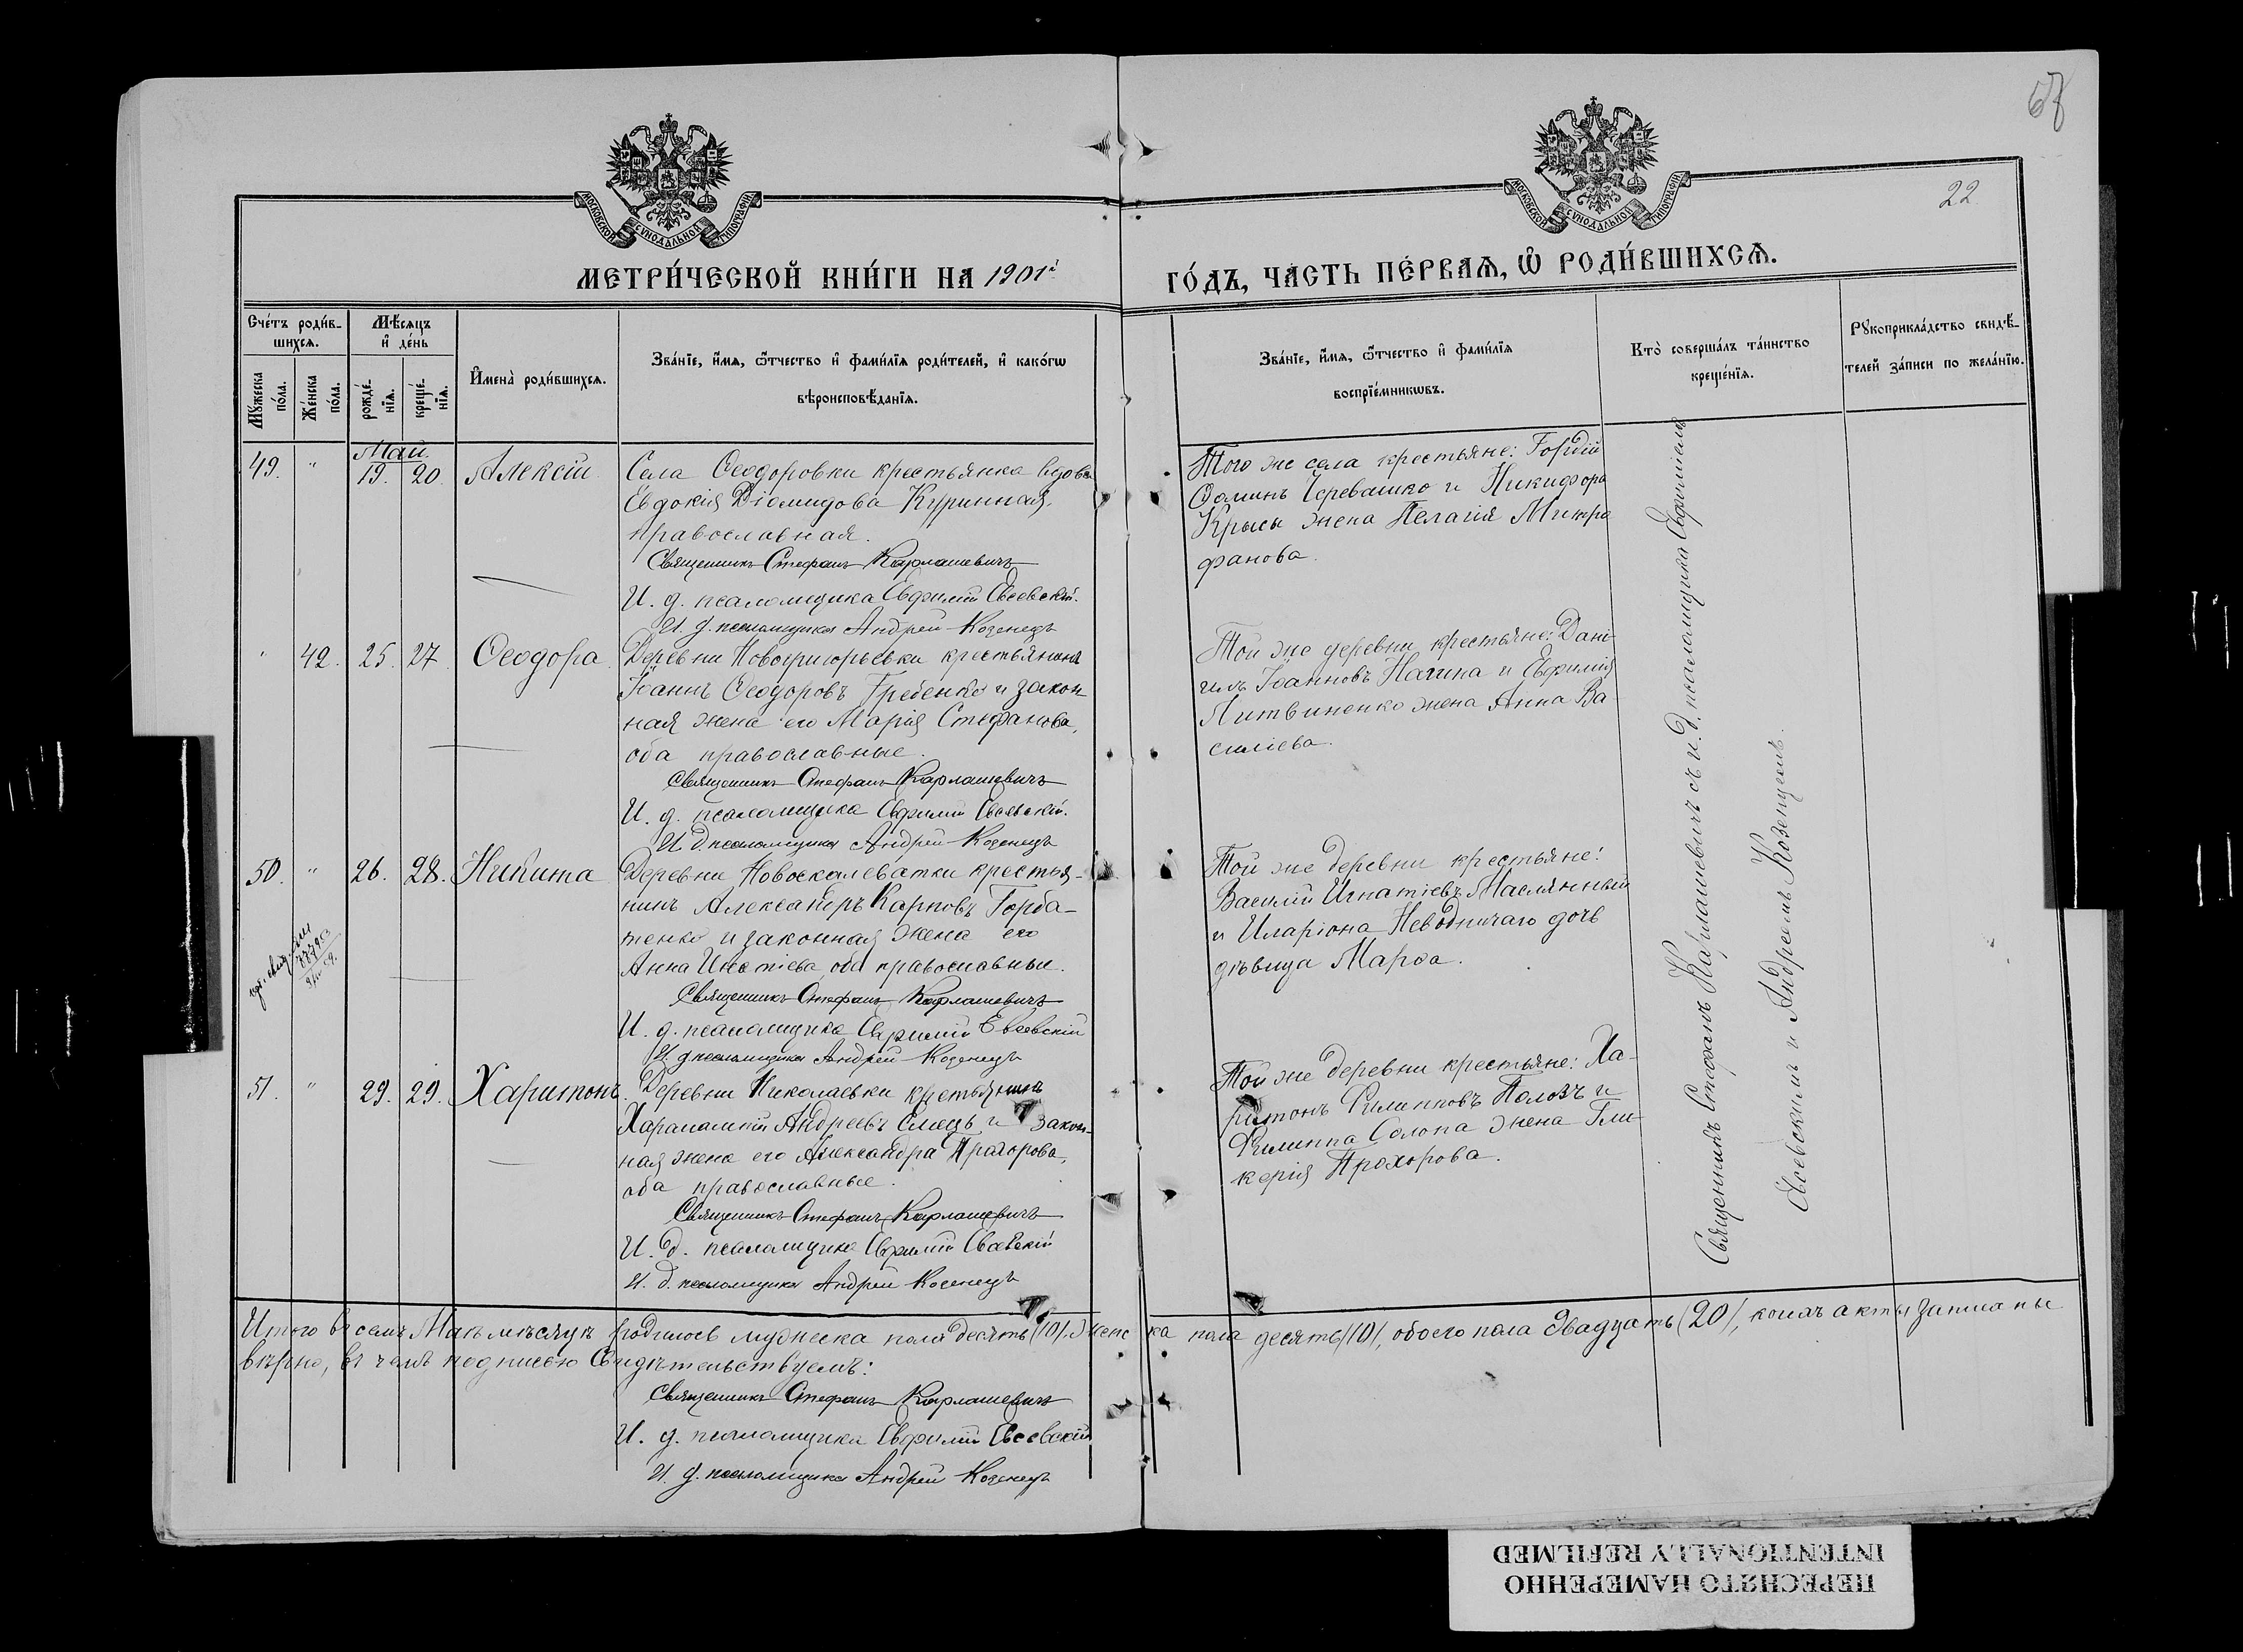 68
22
МОСКОВСКОЙ СѴНОДАЛЬНОЙ ТИПОГРАФІИ
МОСКОВСКОЙ СѴНОДАЛЬНОЙ ТИПОГРАФІИ
МЕТРИ́ЧЕСКОЙ КНИ́ГИ НА 1901й
ГО́ДЪ, ЧА́СТЬ ПЕ́РВАѦ, Ѿ РОДИ́ВШИХСѦ.
Сче́тъ роди́в-
шихсѧ.
Мѣ́сѧцъ
и҆ де́нь
Мꙋ́жеска
по́ла.
Же́нска
по́ла.
рожде́-
нїѧ.
креще́-
нїѧ.
И҆мена̀ роди́вшихсѧ.
Зва́нїе, и҆́мѧ, ѻ҆́тчество и҆ фами́лїѧ роди́телей, и҆ како́гѡ
вѣроисповѣ́данїѧ.
Зва́нїе, и҆́мѧ, ѻ҆́тчество и҆ фами́лїѧ
воспрїе́мникѡвъ.
Кто̀ соверша́лъ та́инство
креще́нїѧ.
Рꙋкоприкла́дство свидѣ́-
телей за́писи по жела́нїю.
Май.
49. " 19. 20. Алексій
Села Ѳеодоровки крестьянка вдова
Евдокія Діомидова Куринная,
православная.
Священникъ Стефанъ Карлашевичъ
И. д. псаломщика Евфимій Евсевскій.
И. д. псаломщика Андрей Козенецъ
Того же села крестьяне: Гордій
Ѳоминъ Черевашко и Никифора
Крысы жена Пелагія Митро
фанова.
" 42. 25. 27. Ѳеодора
Деревни Новогригорьевки крестьянинъ
Іоаннъ Ѳеодоровъ Гребенко и закон-
ная жена его Марія Стефанова,
оба православные.
Священникъ Стефанъ Карлашевичъ
И. д. псаломщика Евфимій Евсевскій.
И. д. псаломщика Андрей Козенецъ
Той же деревни крестьяне: Дані-
илъ Іоанновъ Начина и Евфимія
Литвиненко жена Анна Ва-
силіева.
50. " 26. 28. Никита
Деревни Новоскалеватки крестья-
нинъ Александръ Карповъ Горба-
тенко и законная жена его
Анна Игнатіева, оба православные.
Священникъ Стефанъ Карлашевичъ
И. д. псаломщика Евфимій Евсевскій
И. д. псаломщика Андрей Козенецъ
Той же деревни крестьяне:
Василій Игнатіевъ Маслянный
и Иларіона Неводничаго дочь
дѣвица Марѳа.
51. " 29. 29. Харитонъ.
Деревни Николаевки крестьянинъ
Харалампій Андреевъ Слець и закон-
ная жена его Александра Прохорова,
оба православные.
Священникъ Стефанъ Карлашевичъ
И. д. псаломщика Евфимій Евсевскій
И. д. псаломщика Андрей Козенецъ
Той же деревни крестьяне: Ха-
ритонъ Филипповъ Полозъ и
Филиппа Солопа жена Гли-
керія Прохорова.
Священникъ Стефанъ Карлашевичъ съ и. д. псаломщика Евфиміемъ
Евсевскимъ и Андреемъ Козенцемъ.
Итого въ семъ Маѣ мѣсяцѣ родилось мужеска пола десять (10), женска пола десять (10), обоего пола двадцать (20), коихъ акты записаны
вѣрно, въ чемъ подписью свидѣтельствуемъ:
Священникъ Стефанъ Карлашевичъ
И. д. псаломщика Евфимій Евсевскій
И. д. псаломщика Андрей Козенецъ
ПЕРЕСНЯТО НАМЕРЕННО
INTENTIONALLY REFILMED